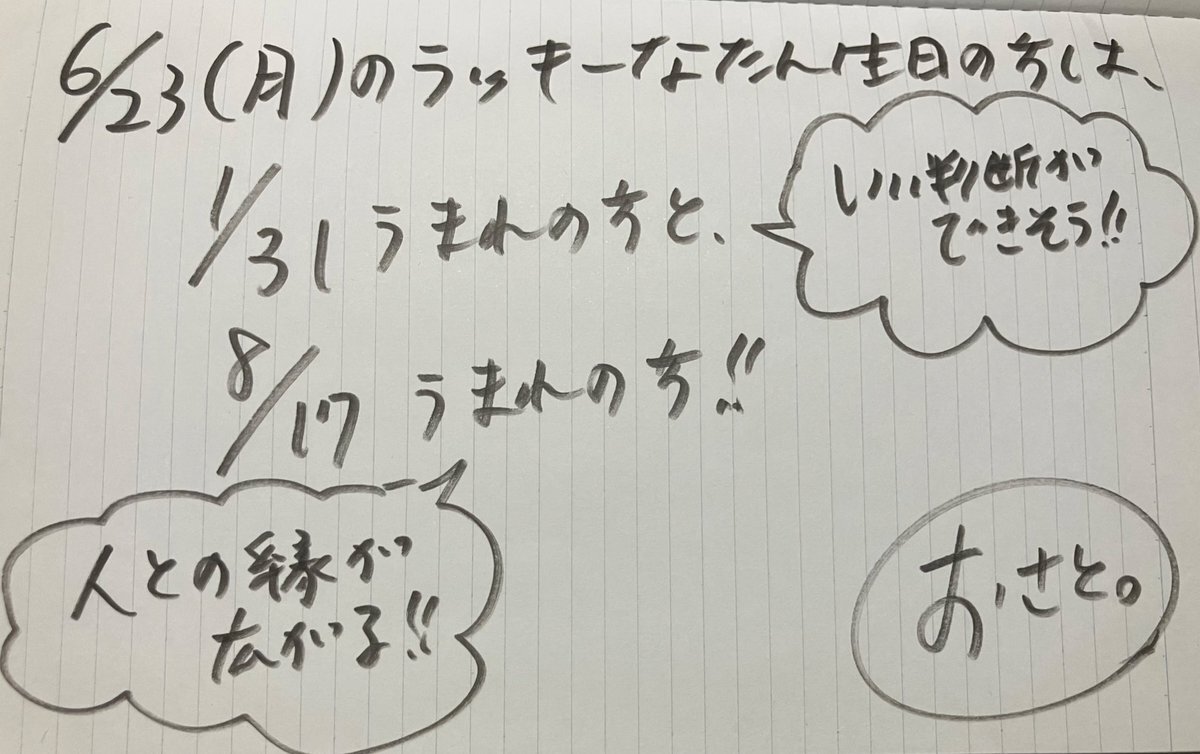 6/23(月)のラッキーなたん生日の方は、
1/31 うまれの方と、
いい判断が
できそう!!
8/17 うまれの方!!
人との縁が
広がる!!
おさと。